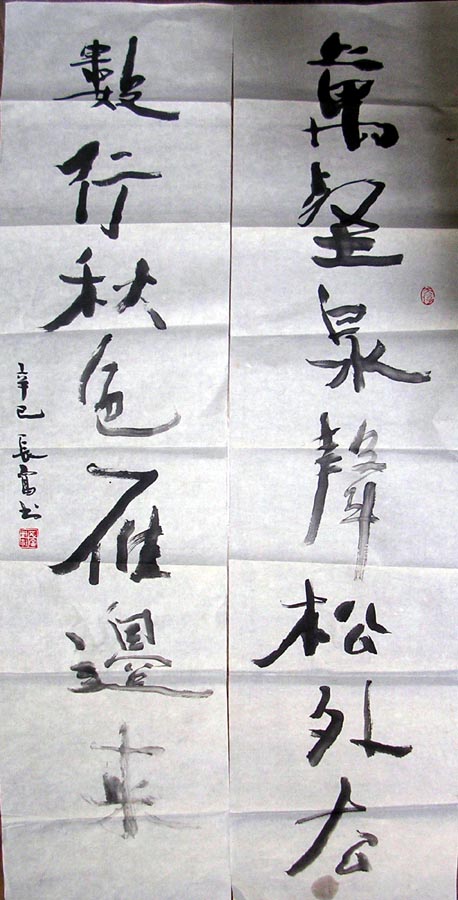 萬壑泉聲松外去
數行秋色雁邊来
辛巳 長富书